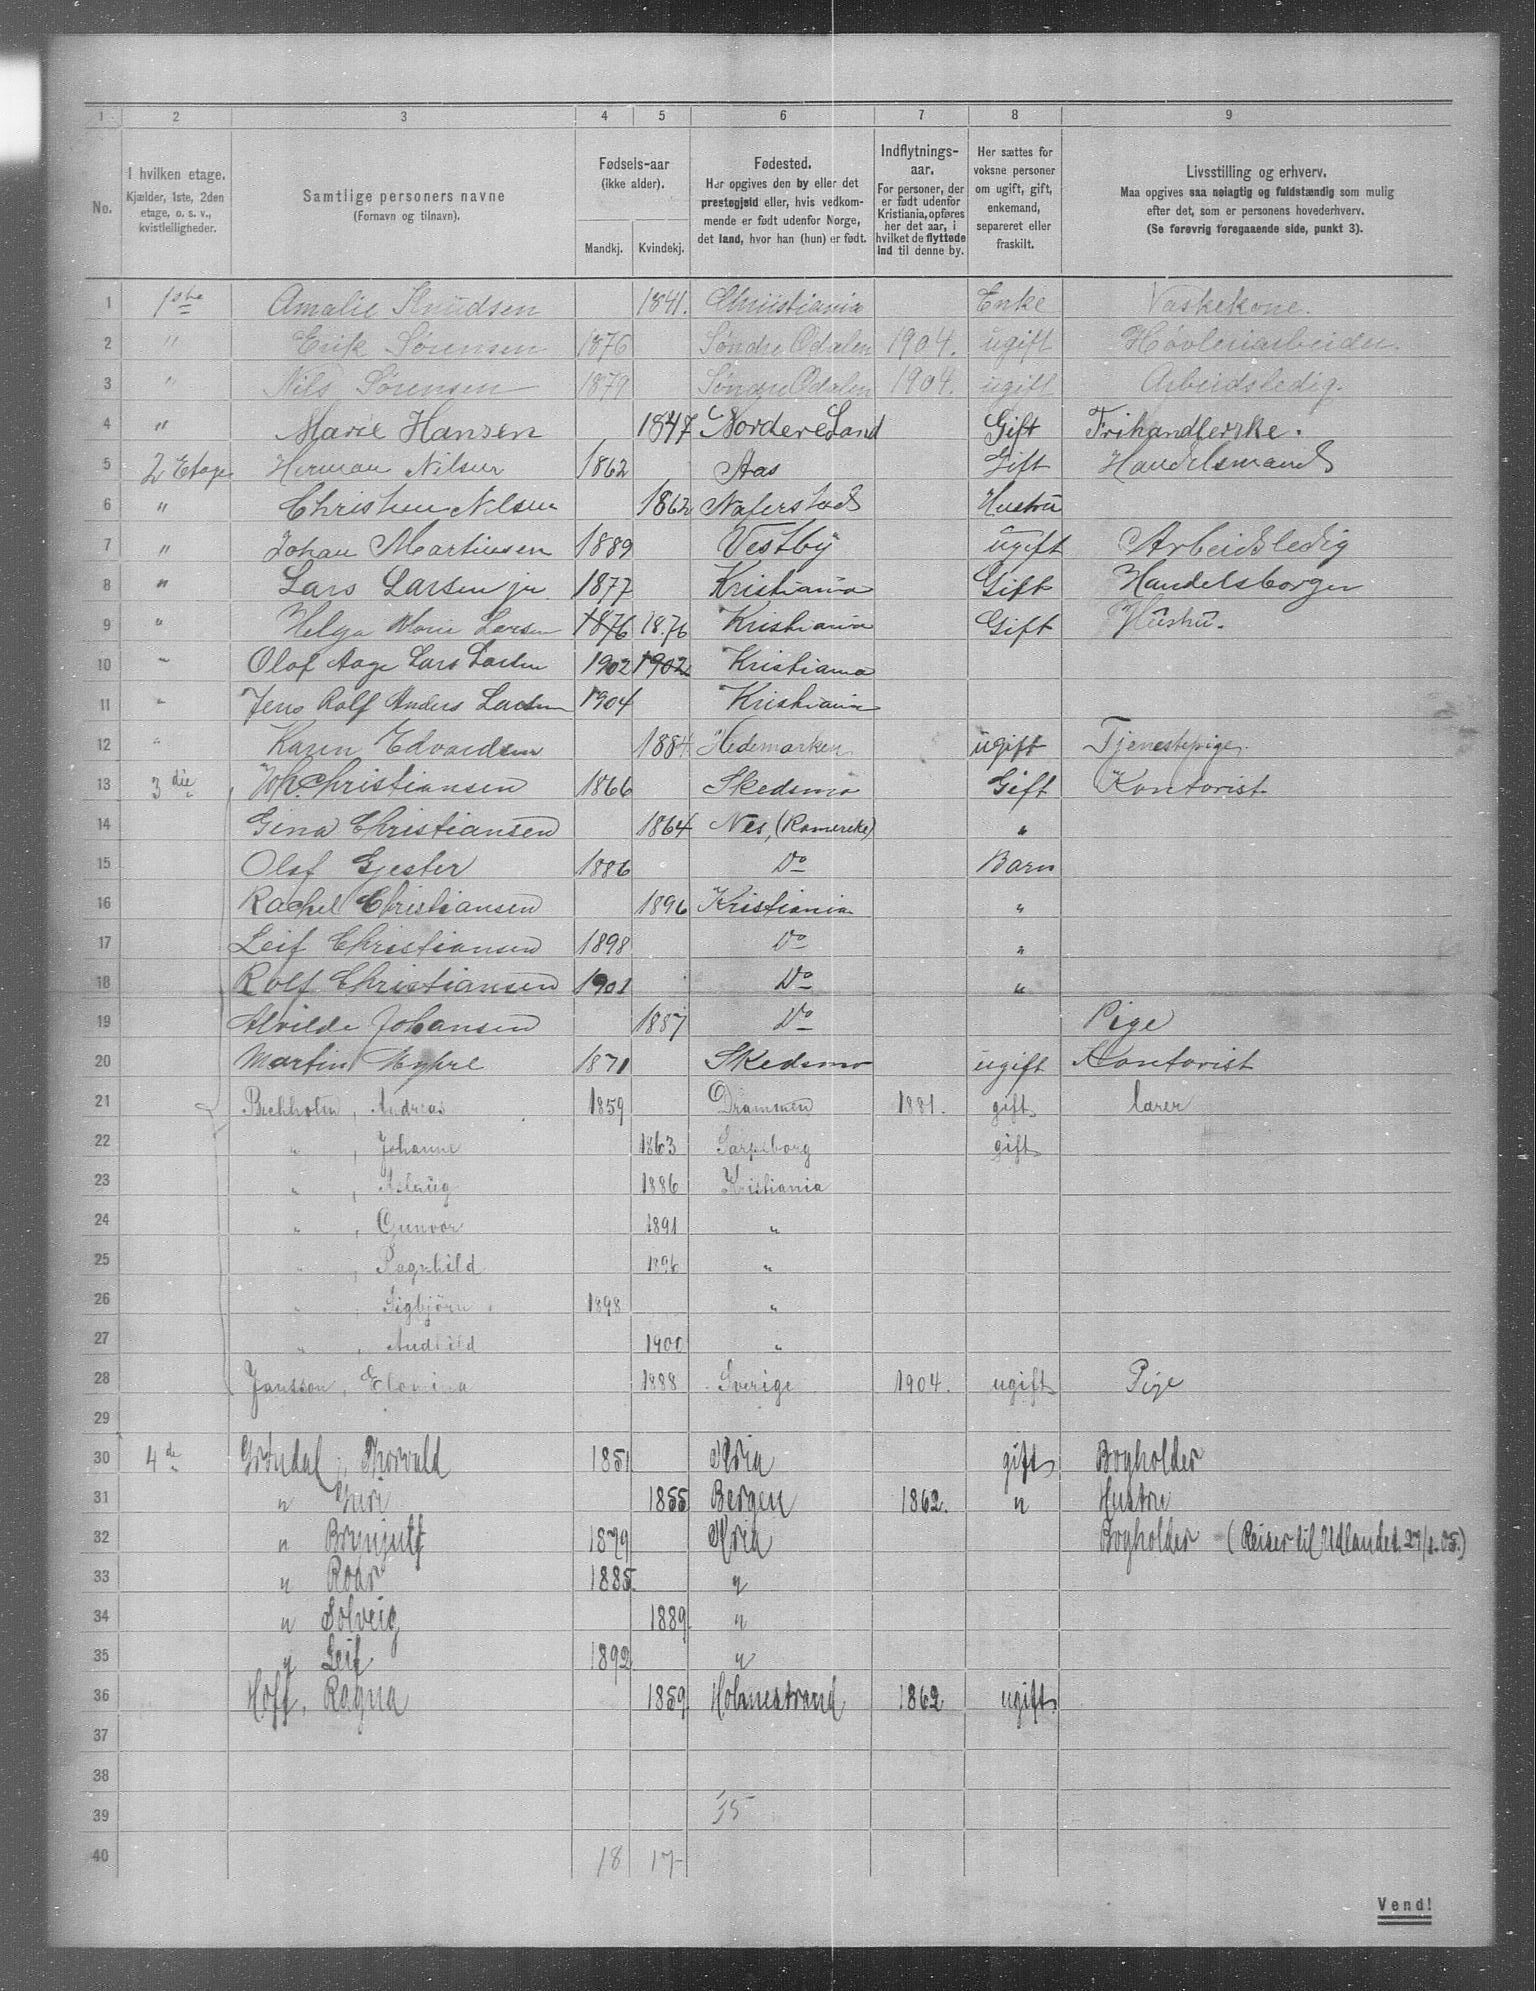 1 2 3 4 5 6 7 8 9
No. I hvilken etage. Kjælder, 1ste, 2den etage, o. s. v., kvistleiligheder. Samtlige personers navne (Fornavn og tilnavn). Fødsels-aar (ikke alder). Mandkj. Kvindekj. Fødested. Her opgives den by eller det prestegjeld eller, hvis vedkommende er født udenfor Norge, det land, hvor han (hun) er født. Indflytnings-aar. For personer, der er født udenfor Kristiania, opføres her det aar, i hvilket de flyttede ind til denne by. Her sættes for voksne personer om ugift, gift, enkemand, separeret eller fraskilt. Livsstilling og erhverv. Maa opgives saa nøiagtig og fuldstændig som mulig efter det, som er personens hovederhverv. (Se forøvrig foregaaende side, punkt 3).
1 1ste Amalie Knudsen 1841. Christiania Enke Vaskekone.
2 " Erik Sørensen 1876 Søndre Odalen 1904. ugift Høvleriarbeider.
3 " Nils Sørensen 1879 Søndre Odalen 1904. ugift Arbeidsledig.
4 " Marie Hansen 1847 Nordere Land Gift Frihandlerske.
5 2 Etage Herman Nilsen 1862 Aas Gift Handelsmand
6 " Nilsen 1862 Hustru
7 " Johan Martinsen 1889 Vestby ugift Arbeidsledig
8 " Lars Larsen jr. 1877 Kristiania Gift Handelsborger
9 " Helga Marie Larsen 1876 18.76 Kristiania Gift Hustru.
10 " Olaf Aage Lars Larsen 1902 1902 Kristiania
11 " Jens Rolf Anders Larsen 1904 Kristiania
12 " Karen Edvardsen 1884. Hedemarken ugift Tjenestepige.
13 3die Joh. Christiansen 1866 Skedsmo Gift Kontorist
14 Gina Christiansen 1864 Nes, (Romerike) "
15 Olaf Gjester 1886 Do Barn
16 Rachel Christiansen 1896 Kristiania "
17 Leif Christiansen 1898 Do "
18 Rolf Christiansen 1901 Do "
19 Alvilde Johansen 1887 Do Pige
20 Martin Myhre 1871 Skedsmo ugift Kontorist
21 Bechholm, Andreas 1859 Drammen 1881. gift lærer
22 " , Johanne 1863 Sarpsborg gift
23 " , Aslaug 1886 Kristiania
24 " , Gunvor 1891 "
25 " , Ragnhild 1896 "
26 " , Sigbjörn 1898 "
27 " , Audhild 1900 "
28 Jansson, 1888 Sverige 1904. ugift Pige
29
30 4de Grøndal, Thorvald 1851 Kria gift Bogholder
31 " Guri 1855 Bergen 1862. " Hustru
32 " Brynjulf 1879 Kria Bogholder (Reiser til Udlandet. 27/2.05.)
33 " Roar 1885. "
34 " Solveig 1889. "
35 " Leif 1892 "
36 Hoff, Ragna 1859. Holmestrand 1862 ugift.
37
38
39 35
40 18 17
Vend!